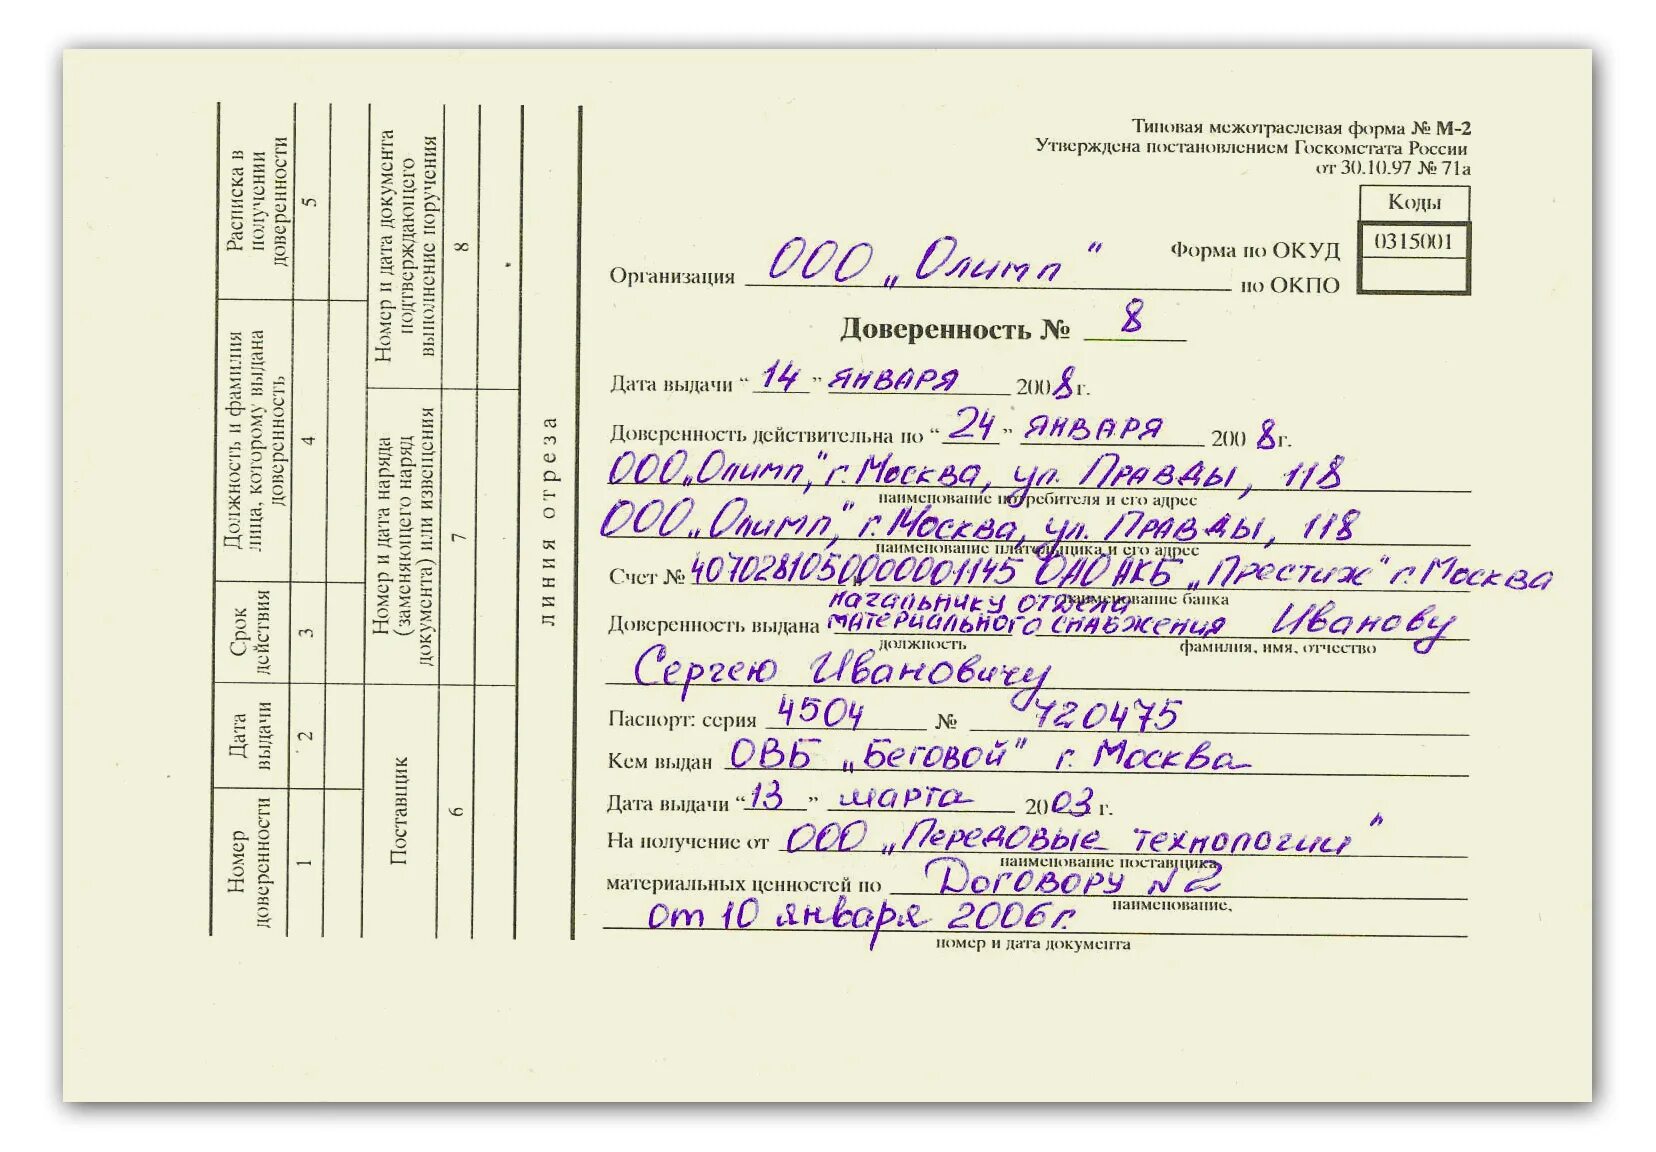 Типовая межотраслевая форма № М-2
Утверждена постановлением Госкомстата России
от 30.10.97 № 71а
Коды
Форма по ОКУД 0315001
по ОКПО
Организация ООО „Олимп"
Доверенность № 8
Дата выдачи “14” января 2008г.
Доверенность действительна по “24” января 2008г.
ООО „Олимп", г. Москва, ул. Правды, 118
наименование потребителя и его адрес
ООО „Олимп", г. Москва, ул. Правды, 118
наименование плательщика и его адрес
Счет № 40702810500000001145 ОАО АКБ „Престиж" г. Москва
наименование банка
начальнику отдела
Доверенность выдана материального снабжения Иванову
должность фамилия, имя, отчество
Сергею Ивановичу
Паспорт: серия 4504 № 120475
Кем выдан ОВБ „Беговой" г. Москва
Дата выдачи “13” марта 2003 г.
На получение от ООО „Передовые технологии"
наименование поставщика
материальных ценностей по Договору №2
наименование,
от 10 января 2006г.
номер и дата документа
линия отреза
Номер доверенности
Дата выдачи
Срок действия
Должность и фамилия
лица, которому выдана
доверенность
Расписка в
получении
доверенности
1 2 3 4 5
Поставщик
Номер и дата наряда
(заменяющего наряд
документа) или извещения
Номер и дата документа
подтверждающего
выполнение поручения
6 7 8